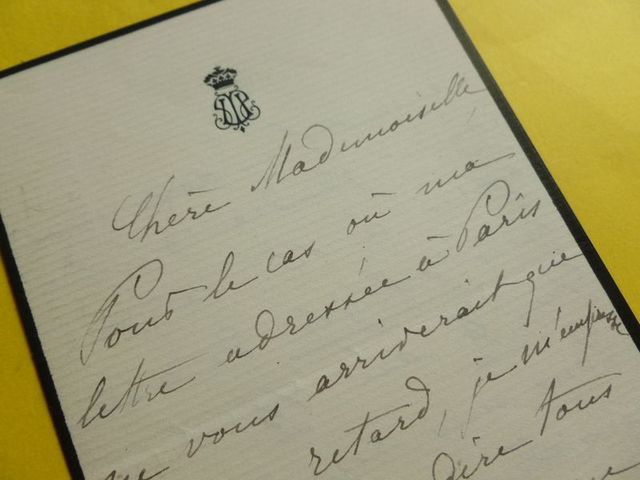 Chère Mademoiselle
Pour le cas où ma
lettre adressée à Paris
ne vous arriverait que
retard, je m'empresse
dire tous